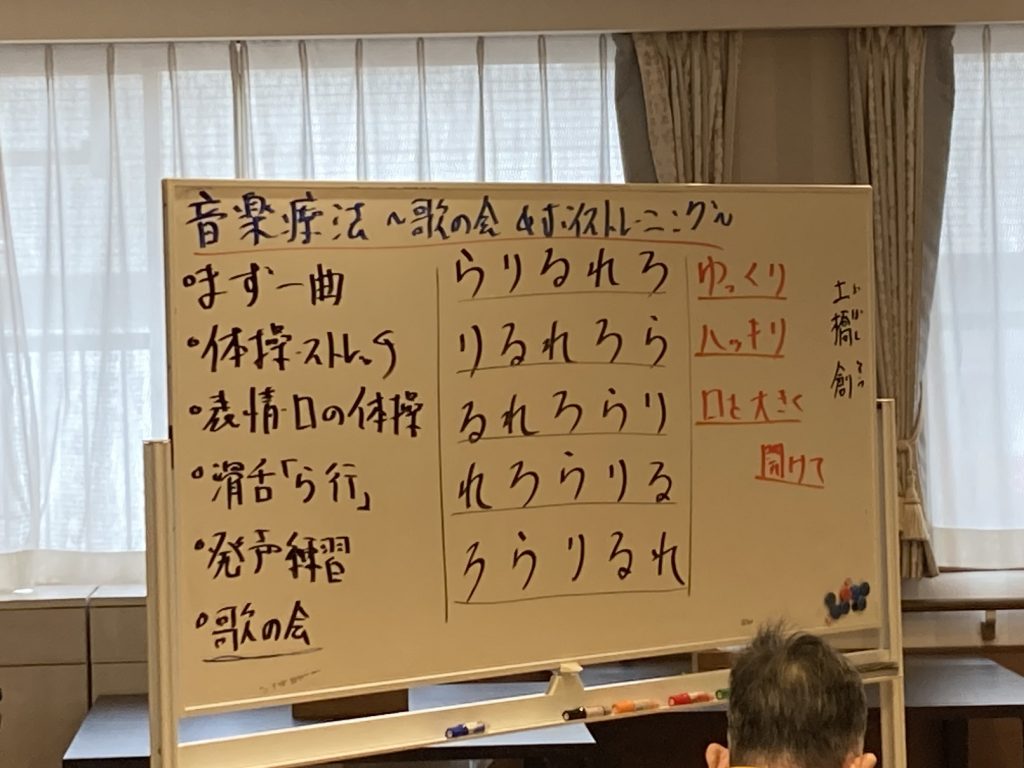 音楽療法 ~歌の会 & ボイストレーニング~
・まず一曲
・体操・ストレッチ
・表情・口の体操
・滑舌「ら行」
・発声練習
・歌の会
らりるれろ
りるれろら
るれろらり
れろらりる
ろらりるれ
ゆっくり
ハッキリ
口を大きく
開けて
土橋 創